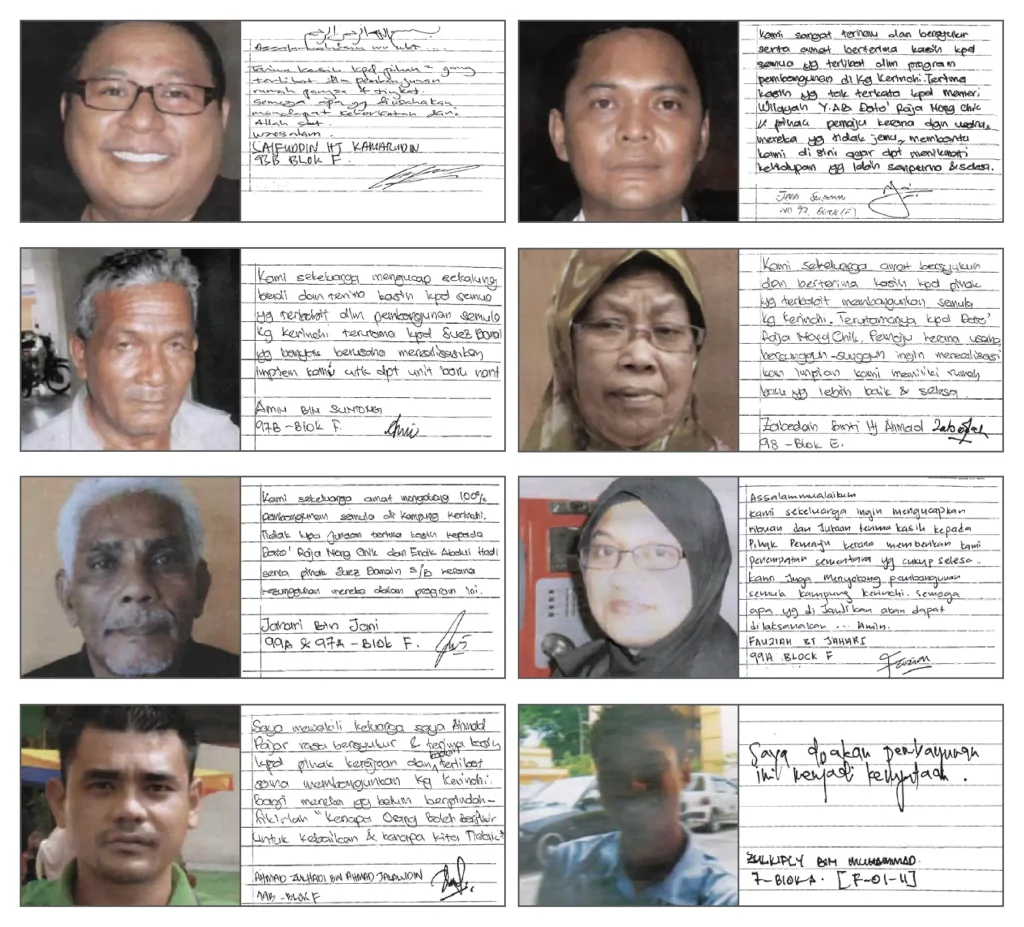 Assalamualaikum wrt wbt ....
Terima kasih kpd pihak² yang
terlibat dlm pembangunan
rumah pangsa 4 tingkat.
Semoga apa yg diusahakan
mendapat keberkatan dari
Allah swt.
Wassalam.
SAIFUDDIN HJ KAMARUDIN
98B BLOK F.
Kami sangat terharu dan bersyukur
serta amat berterima kasih kpd
semua yg terlibat dlm program
pembangunan di Kg Kerinchi. Terima
kasih yg tak terkata kpd Menteri
Wilayah Y.AB Dato' Raja Nong Chik
& pihak pemaju kerana dgn usaha
mereka yg tidak jemu, membantu
kami di sini agar dpt menikmati
kehidupan yg lebih sempurna & selesa.
NO 97 Blok (F)
Kami sekeluarga mengucap sekalung
budi dan terima kasih kpd semua
yg terbabit dlm pembangunan semula
Kg Kerinchi terutama kpd Suez Domain
yg banyak berusaha merealisasikan
impian kami utk dpt unit baru nanti
AMIN BIN SUNTONG
97B - Blok F.
Kami sekeluarga amat bersyukur
dan berterima kasih kpd pihak
yg terbabit membangunkan semula
Kg Kerinchi. Terutamanya kpd Dato'
Raja Nong Chik, Pemaju kerana usaha
bersungguh-sungguh ingin merealisasi
kan impian kami memiliki rumah
baru yg lebih baik & selesa.
Zabedah Binti Hj Ahmad
98 - Blok E.
Kami sekeluarga amat menyokong 100%
pembangunan semula di Kampung Kerinchi.
Tidak lupa Jutaan terima kasih kepada
Dato' Raja Nong Chik dan Encik Abdul Hadi
serta pihak Suez Domain S/B kerana
kesungguhan mereka dalam program ini.
Jahari Bin Jani
99A & 97A - Blok F.
Assalammualaikum
Kami sekeluarga ingin mengucapkan
ribuan dan Jutaan terima kasih kepada
Pihak Pemaju kerana memberikan kami
Penempatan sementara yg cukup selesa..
Kami Juga Menyokong pembangunan
semula kampung kerinchi. Semoga
apa yg di Janjikan akan dapat
dilaksanakan ... Amin.
FAUZIAH BT JAHARI
99A BLOCK F
Saya mewakili keluarga saya Ahmad
Fajar rasa bersyukur & terima kasih
kpd pihak kerajaan dan badan terlibat
guna membangunkan Kg Kerinchi.
Bagi mereka yg belum berpindah-
fikirlah "Kenapa Orang Boleh berfikir
untuk kebaikan & kenapa kita Tidak?
AHMAD ZULHADI BIN AHMAD JALALUDIN
99B-BLOK F
Saya doakan pembangunan
ini menjadi kenyataan.
ZULKIPLY BIN MUHAMMAD.
7-BLOK A. [F-01-4]